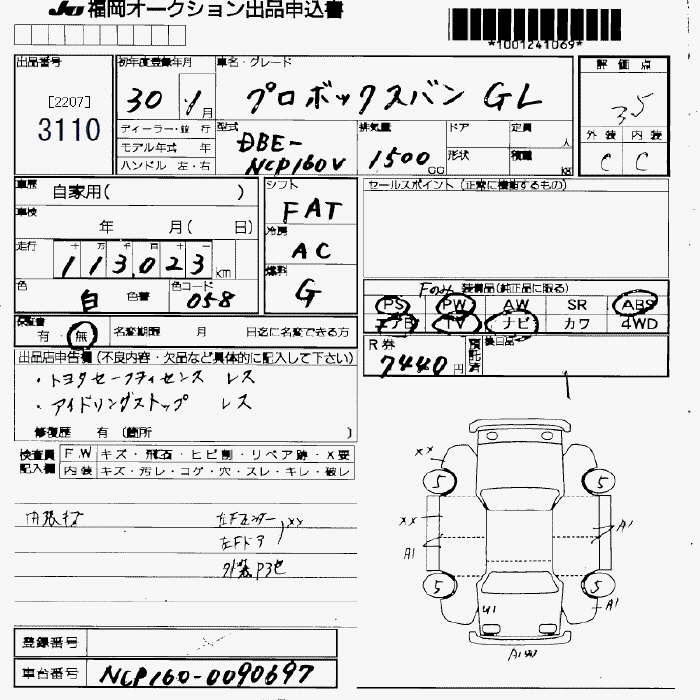 JU 福岡オークション出品申込書
*1001241069*
出品番号
[2207]
3110
初年度登録年月
30 年 1 月
車名・グレード
プロボックスバン GL
評価点
3.5
外装 内装
C C
ディーラー・並行
モデル年式 年
ハンドル 左・右
型式
DBE-
NCP160V
排気量
1500 CC
ドア
形状
定員 人
積載 KG
車歴
自家用( )
車検
年 月( 日)
走行
十 万 千 百 十 一
113,023 km
色
白 色替
色コード
058
シフト
FAT
冷房
AC
燃料
G
セールスポイント (正常に機能するもの)
Fのみ 装備品(純正品に限る)
PS PW AW SR ABS
エアB TV ナビ カワ 4WD
保証書
有・無
名変期限 月 日迄に名変できる方
R券
7440円
預託済
後日品
出品店申告欄 (不良内容・欠品など具体的に記入して下さい)
・トヨタセーフティセンス レス
・アイドリングストップ レス
修復歴 有 〔箇所 〕
検査員記入欄
F.W キズ・飛石・ヒビ割・リペア跡・X要
内装 キズ・汚レ・コゲ・穴・スレ・キレ・破レ
左Fフェンダー
左Fドア
XX
XX
5 5
XX
A1
A1
5 5
U1
A1
登録番号
車台番号
NCP160-0090697